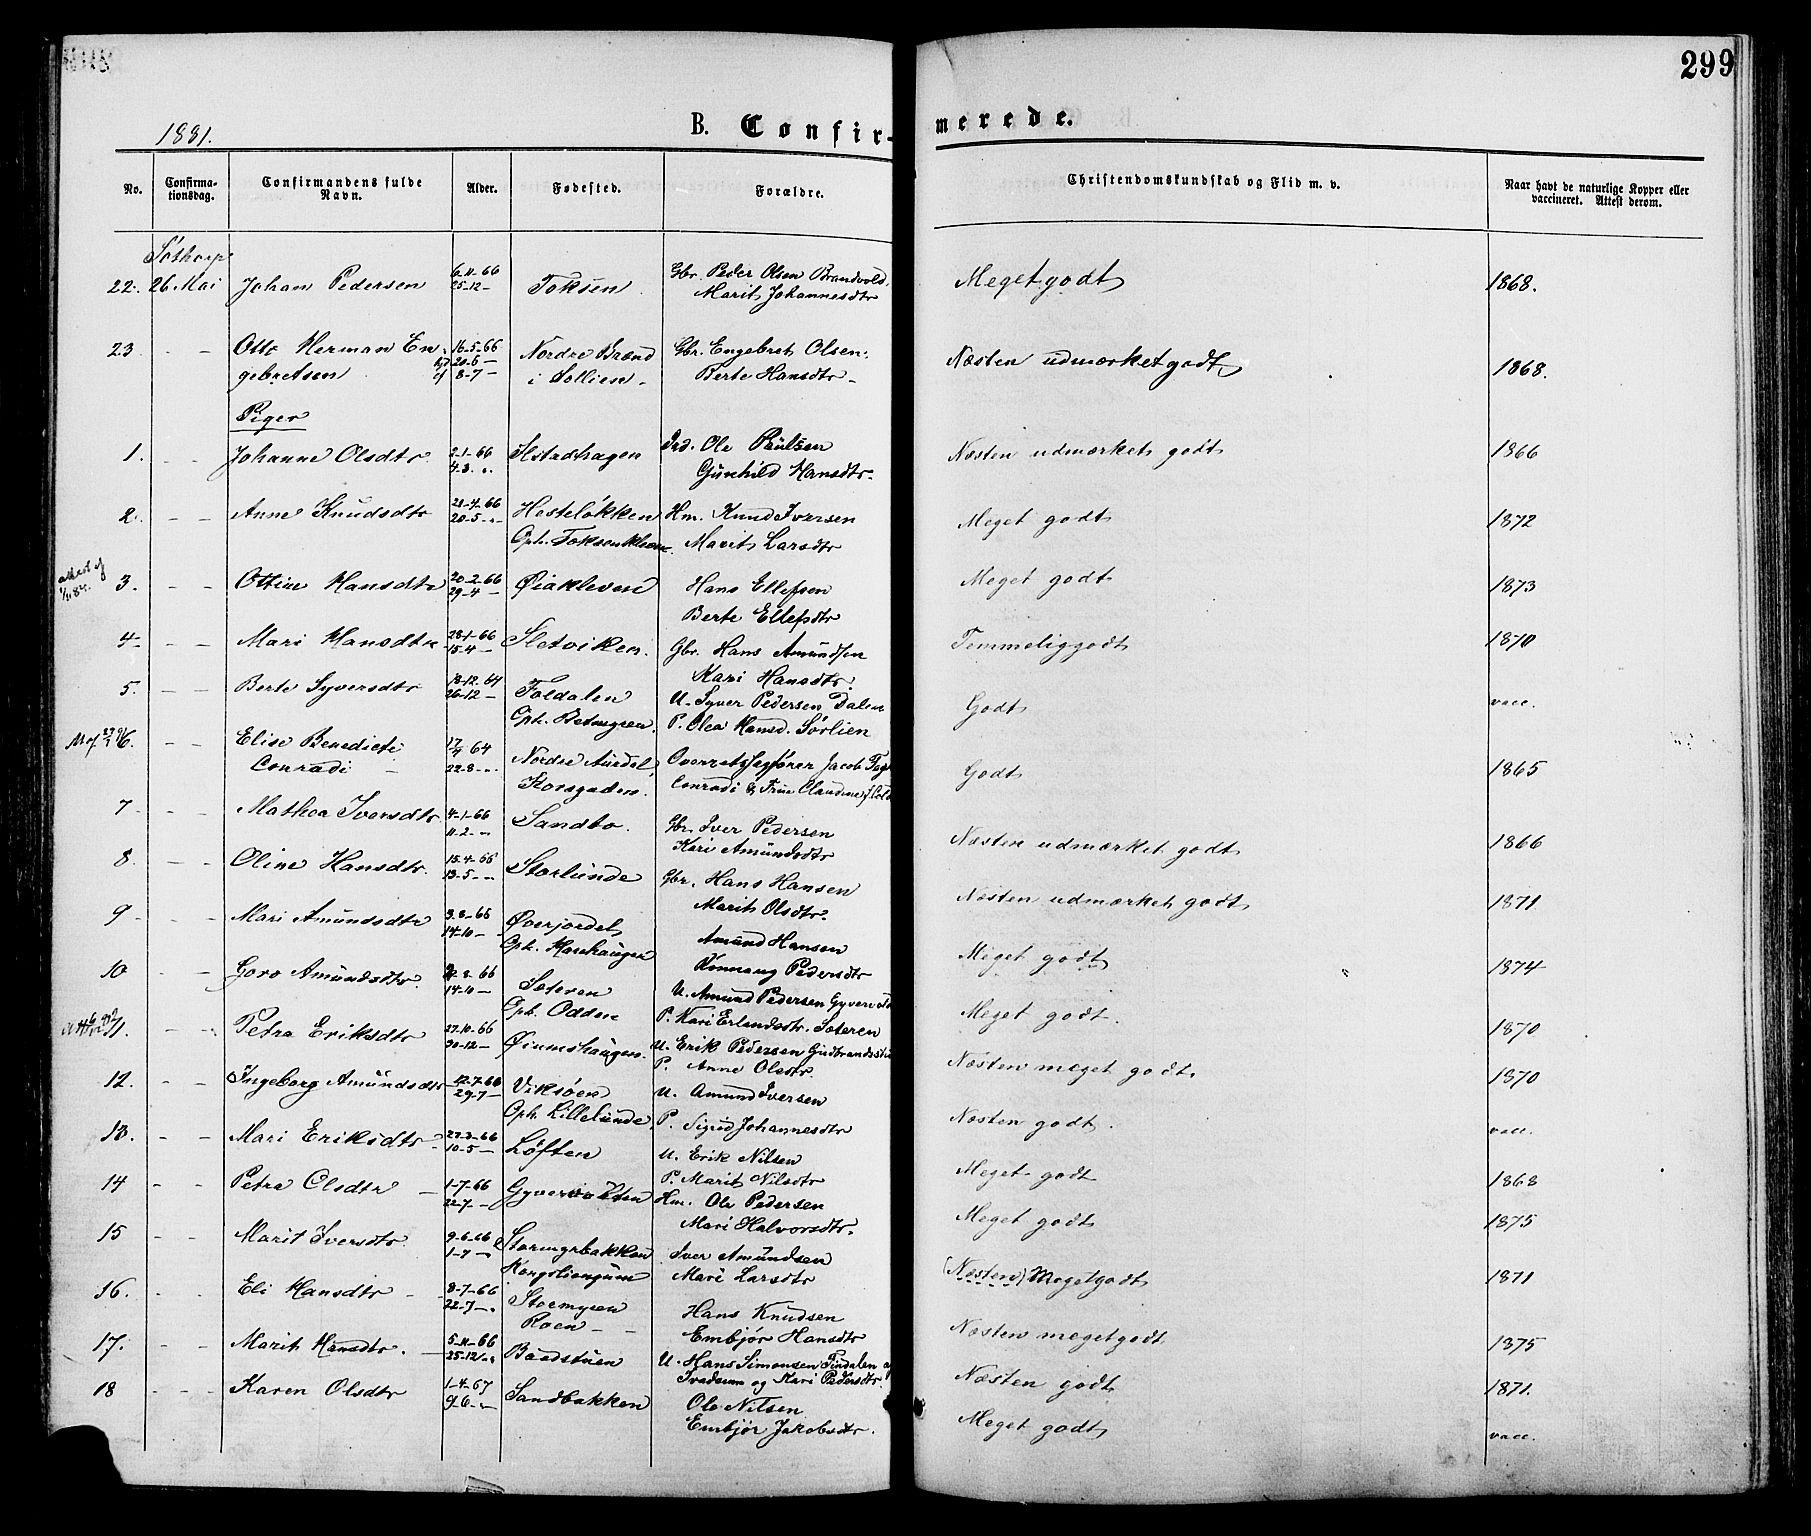 299
1881.
B. Confir-
merede.
No.
Confirma-
tionsdag.
Confirmandens fulde
Navn.
Alder.
Fødested.
Forældre.
Christendomskundskab og Flid m. v.
Naar havt de naturlige Kopper eller
vaccineret. Attest derom.
22. 26 Mai Johan Pedersen 6-11-66 25-12- Toksen Gbr. Peder Olsen Brandvold
Marit Johannesdtr Meget godt 1868.
23 - - Otto Herman En- 16-5-66 20-6- Nordre Brænd Gbr. Engebret Olsen
gebretsen 8-7- i Sollien - Berte Hansdtr - Næsten udmærket godt 1868.
Piger
1. - - Johanne Olsdtr 2-1-66 4-3 Ole Paulsen
Gunhild Hansdtr. Næsten udmærket godt 1866
2. - - Anne Knudsdtr 28-4-66 20-5 Hesteløkken Hm. Knud Iversen
Oph. Marit Larsdtr Meget godt 1872
3. - - Ottine Hansdtr 20-2-66 29-4- Øiakleven Hans Ellefsen
Berte Ellefsdtr Meget godt 1873
4 - - Mari Hansdtr 28-1-66 15-4- Sletviken. Gbr. Hans Amundsen
Kari Hansdtr. Temmelig godt 1870
5. - - Berte Syversdtr 18-12-64 26-12- Foldalen U. Syver Pedersen Dalen
Oph. P. Olea Hansd. Sørlien Godt vacc.
6. - - Elise Benedicte 17/7 64 Nordre Aurdal, Overretssagfører Jacob
Conradi - 22-8 Korsgaden. Conradi & Frue Claudine Godt 1865
7 - - Mathea Iversdtr 4-1-66 11-2 Sandbo. Gbr. Iver Pedersen
Kari Amundsdtr Næsten udmærket godt 1866
8 - - Oline Hansdtr. 15-4-66 13-5 Storlunde Gbr. Hans Hansen
Marit Olsdtr. Næsten udmærket godt 1871
9 - - Mari Amundsdtr 9-8-66 14-10- Øverjordet Amund Hansen
Oph. Rønnaug Pedersdtr Meget godt 1874
10 - - Goro Amundsdtr. 66 14-10- Sæteren U. Amund Pedersen
Oph. Odden P. Kari Erlandsdtr. Sæteren Meget godt. 1870
11. - Petra Eriksdtr 27-10-66 30-12- Øiumshaugen. U. Erik Pedersen
P. Anne Olsdtr. Næsten meget godt 1870
12. - - Ingeborg Amundsdtr 12-7-66 29-7- Viksøen U. Amund Iversen
Oph. Lillelunde P. Sigrid Johannesdtr Næsten godt. vacc.
13. - - Mari Eriksdtr 27-3-66 10-5- Løften U. Erik Nilsen
P. Marit Nilsdtr Meget godt 1868
14 - - Petra Olsdtr 1-7-66 22-7- Hm. Ole Pedersen
Mari Halvorsdtr. Meget godt 1875
15 - - Marit Iversdtr. 9-6-66 1-7 Iver Amundsen
Mari Larsdtr (Næsten) Meget godt 1871
16. - - Eli Hansdtr 8-7-66 22-7- Stormyren Hans Knudsen
Roen - Embjør Hansdtr Næsten meget godt 1875
17. - - Marit Hansdtr. 5-11-66 25-12 Baadstuen U. Hans Simonsen
og Mari Pedersdtr. Næsten godt 1871.
18 - - Karen Olsdtr 1-4-67 9-6 Sandbakken Ole Nilsen
Embjør Jakobsdtr. Meget godt vacc.